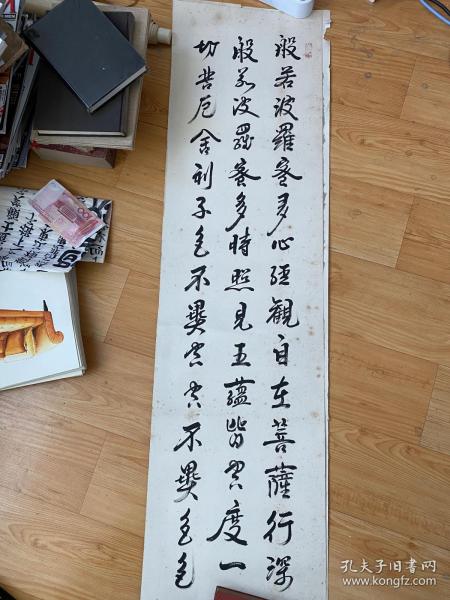 般若波羅蜜多心經觀自在菩薩行深
般若波羅蜜多時照見五蘊皆空度一
切苦厄舍利子色不異空空不異色色
孔夫子旧书网
www.kongfz.com